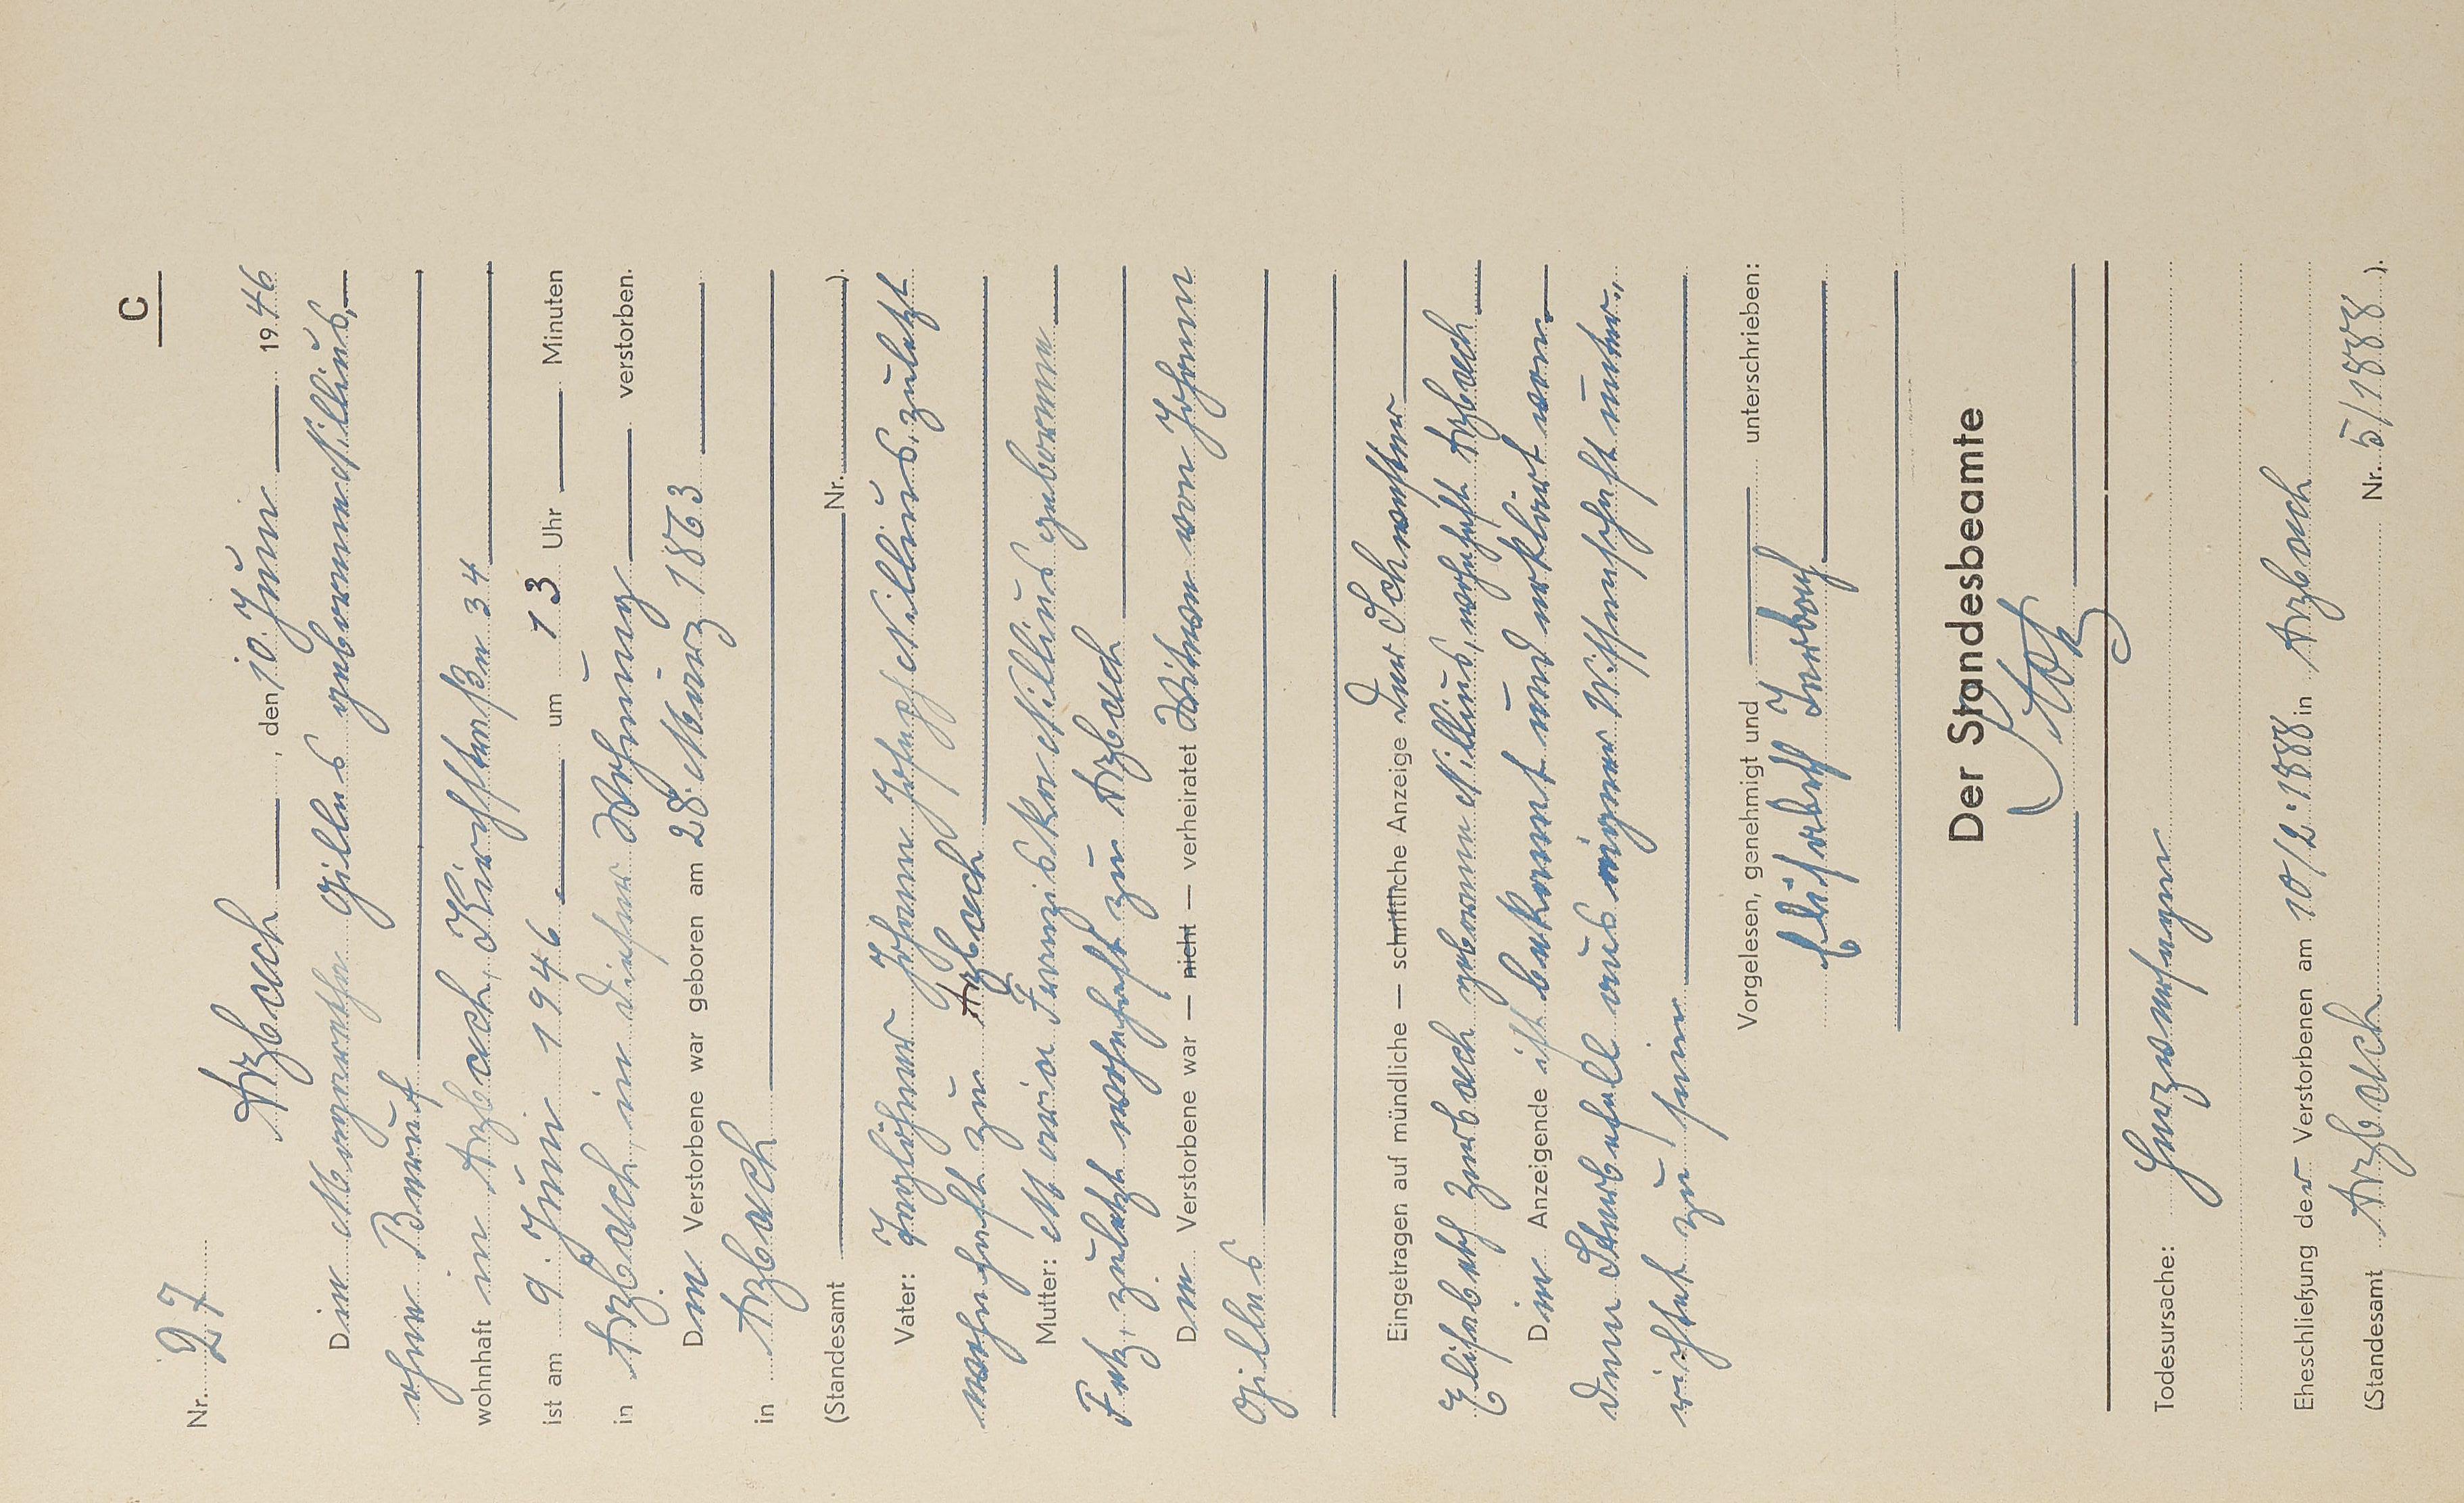 C
Nr. 27
Arzbach, den 10. Juni 1946
Die Margarethe Gilles geborene Nillius,
ohne Beruf
wohnhaft in Arzbach, Kirchstraße 34
ist am 9. Juni 1946 um 13 Uhr Minuten
in Arzbach, in dieser Wohnung verstorben.
Die Verstorbene war geboren am 28. März 1863
in Arzbach
(Standesamt Nr. ).
Vater: Taglöhner Johann Joseph Nillius, zuletzt
wohnhaft zu Arzbach
Mutter: Maria Franziska Nillius geborene
Fetz, zuletzt wohnhaft zu Arzbach
Die Verstorbene war — nicht — verheiratet Witwe von Johann
Gilles
Eingetragen auf mündliche — schriftliche Anzeige der Schwester
Elisabeth Zerbach geborene Nillius, wohnhaft Arzbach
Die Anzeigende ist bekannt und erklärt von
dem Sterbefall aus eigener Wissenschaft unter„
richtet zu sein
Vorgelesen, genehmigt und unterschrieben:
Elisabeth
Der Standesbeamte
Todesursache: Herzversagen
Eheschließung der Verstorbenen am 10/2.1888 in Arzbach
(Standesamt Arzbach Nr. 5/1888 ).